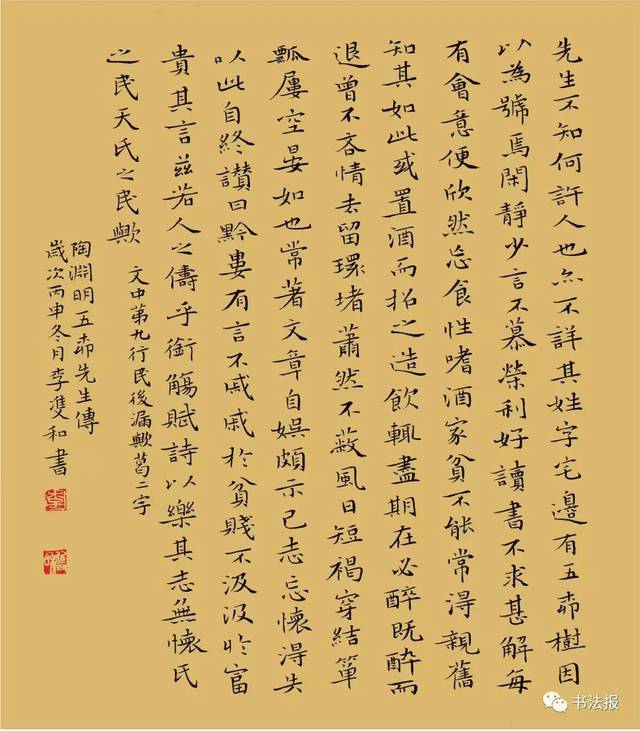 先生不知何許人也亦不詳其姓字宅邊有五柳樹因
以為號焉閑靜少言不慕榮利好讀書不求甚解每
有會意便欣然忘食性嗜酒家貧不能常得親舊
知其如此或置酒而招之造飲輒盡期在必醉既醉而
退曾不吝情去留環堵蕭然不蔽風日短褐穿結簞
瓢屢空晏如也常著文章自娛頗示己志忘懷得失
以此自終讃曰黔婁有言不戚戚於貧賤不汲汲於富
貴其言茲若人之儔乎銜觴賦詩以樂其志無懷氏
之民天氏之民歟
文中第九行民後漏歟葛二字
陶淵明五柳先生傳
歲次丙申冬月李雙和書
书法报